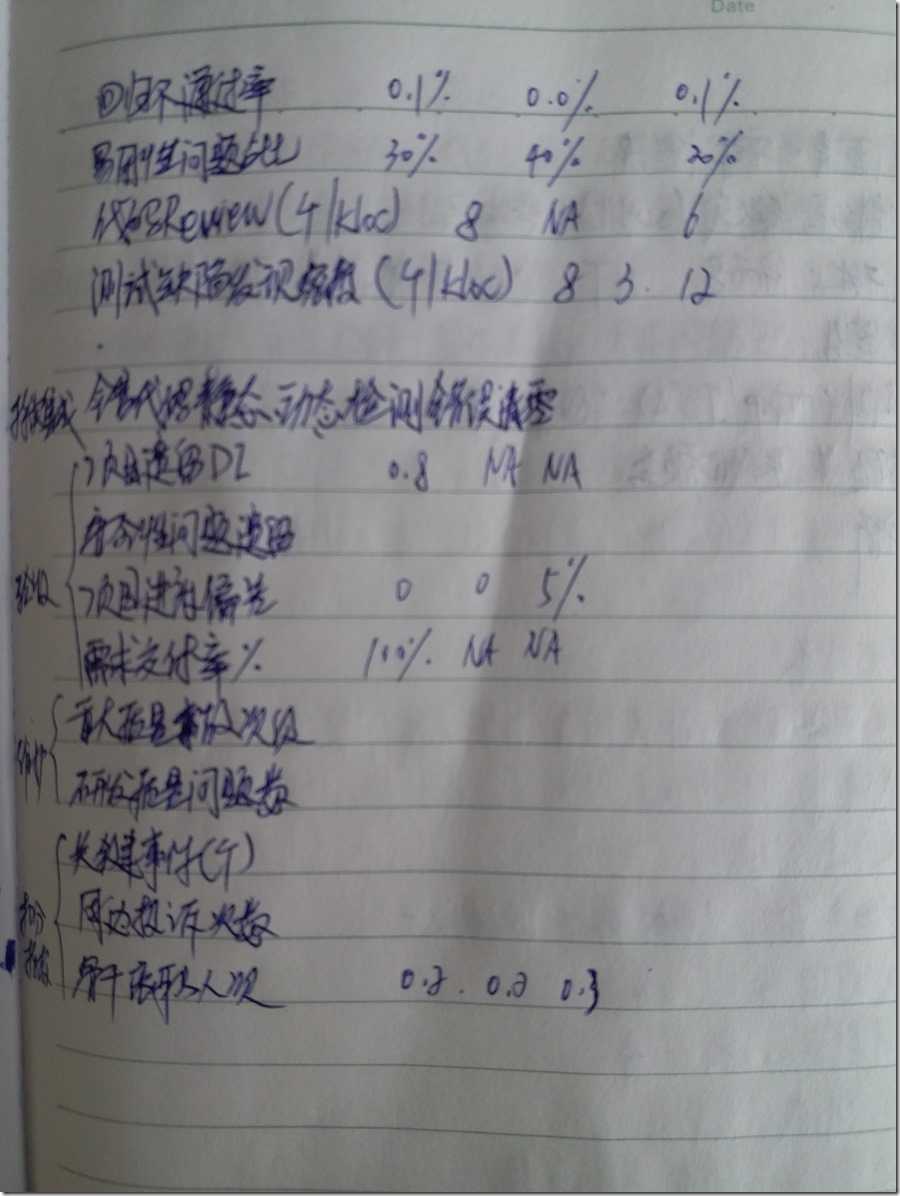 Date
回归不通过率 0.1% 0.0% 0.1%
易用性问题占比 30% 40% 20%
代码Review(个/kloc) 8 NA 6
测试缺陷发现密度(个/kloc) 8 3. 12
持续集成 全量代码静态、动态检测错误清零
项目遗留DI 0.8 NA NA
安全性问题遗留
验收 项目进度偏差 0 0 5%
需求交付率% 100% NA NA
重大质量事故次数
维护 研发质量问题数
关键事件(个)
扣分 周边投诉次数
指标 骨干离职人次 0.2. 0.2 0.3